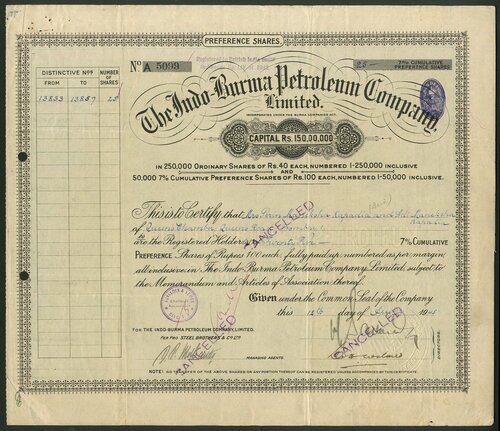 PREFERENCE SHARES.
No A 5093
25
7% CUMULATIVE PREFERENCE SHARES
DISTINCTIVE Nos
NUMBER OF SHARES
FROM
TO
13833
13857
25
The Indo Burma Petroleum Company,
Limited.
INCORPORATED UNDER THE BURMA COMPANIES ACT.
CAPITAL Rs. 150,00,000
IN 250,000 ORDINARY SHARES OF Rs. 40 EACH, NUMBERED 1-250,000 INCLUSIVE
AND
50,000 7% CUMULATIVE PREFERENCE SHARES OF Rs. 100 EACH, NUMBERED 1-50,000 INCLUSIVE.
This is to Certify that Mrs Kapadia and
of Queens Chamber, Queens Road, Bombay
are the Registered Holders of Twenty Five 7% CUMULATIVE
PREFERENCE Shares of Rupees 100 each fully paid up, numbered as per margin,
all inclusive in The Indo-Burma Petroleum Company, Limited, subject to
the Memorandum and Articles of Association thereof.
Given under the Common Seal of the Company
this day of 194
CANCELLED
CANCELLED
CANCELLED
FOR THE INDO-BURMA PETROLEUM COMPANY, LIMITED.
PER PRO STEEL BROTHERS & Co Ltd
MANAGING AGENTS.
DIRECTORS.
NOTE: NO TRANSFER OF THE ABOVE SHARES OR ANY PORTION THEREOF CAN BE REGISTERED UNLESS ACCOMPANIED BY THIS CERTIFICATE.